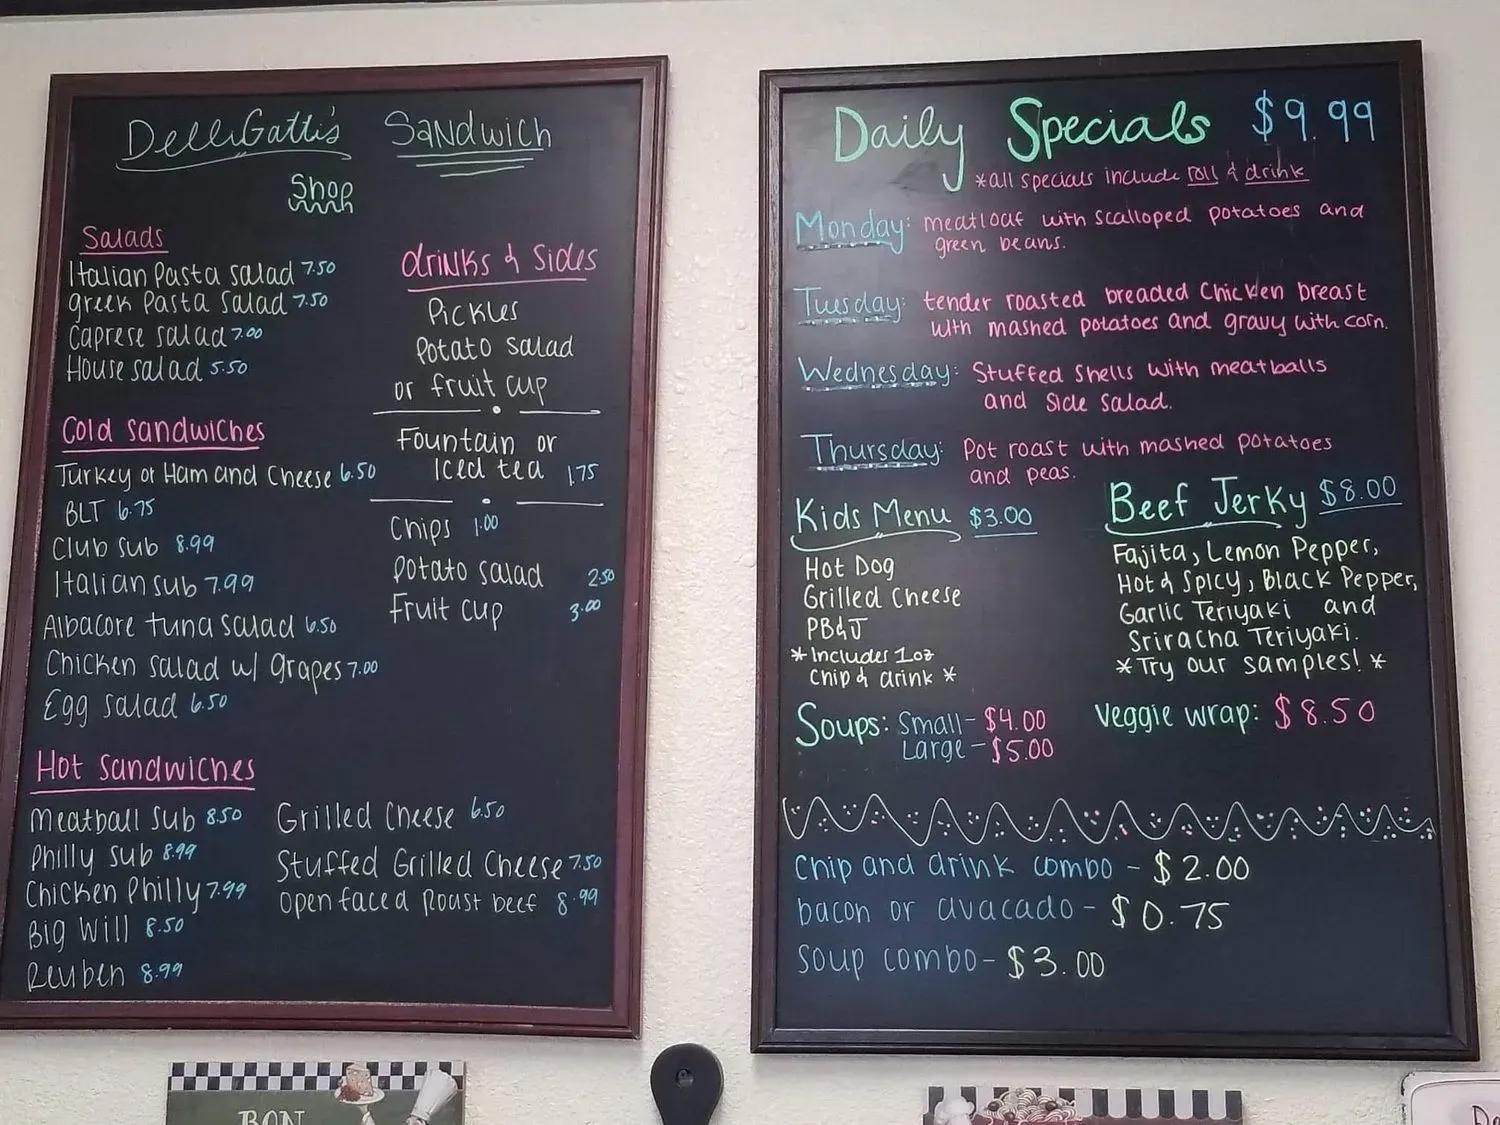 DelliGatti's Sandwich
Shop
Salads
Italian Pasta salad 7.50
greek Pasta Salad 7.50
Caprese salad 7.00
House salad 5.50
Cold sandwiches
Turkey or Ham and Cheese 6.50
BLT 6.75
Club sub 8.99
Italian sub 7.99
Albacore tuna salad 6.50
Chicken salad w/ grapes 7.00
Egg salad 6.50
drinks & Sides
Pickles
Potato salad
or fruit cup
Fountain or
Iced tea 1.75
Chips 1.00
Potato salad 2.50
Fruit cup 3.00
Hot sandwiches
Meatball sub 8.50
Philly sub 8.99
Chicken Philly 7.99
Big Will 8.50
Reuben 8.99
Grilled Cheese 6.50
Stuffed Grilled Cheese 7.50
Open faced Roast beef 8.99
Daily Specials $9.99
*all specials include roll & drink
Monday: meatloaf with scalloped potatoes and
green beans.
Tuesday: tender roasted breaded Chicken breast
with mashed potatoes and gravy with corn.
Wednesday: Stuffed Shells with meatballs
and side salad.
Thursday: Pot roast with mashed potatoes
and peas.
Kids Menu $3.00
Hot Dog
Grilled Cheese
PB&J
*Includes 1oz
chip & drink*
Beef Jerky $8.00
Fajita, Lemon Pepper,
Hot & Spicy, Black Pepper,
Garlic Teriyaki and
Sriracha Teriyaki.
*Try our samples!*
Soups: Small - $4.00
Large - $5.00
Veggie wrap: $8.50
Chip and drink combo - $2.00
bacon or avacado - $0.75
Soup combo - $3.00
BON